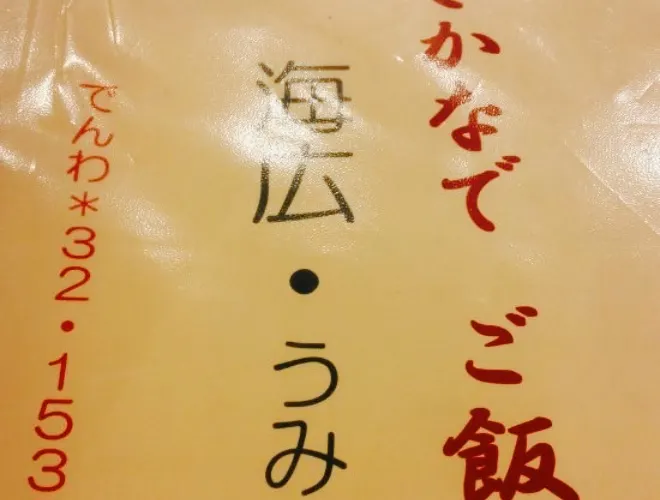 かなで ご飯
海広・うみ
でんわ*32・153